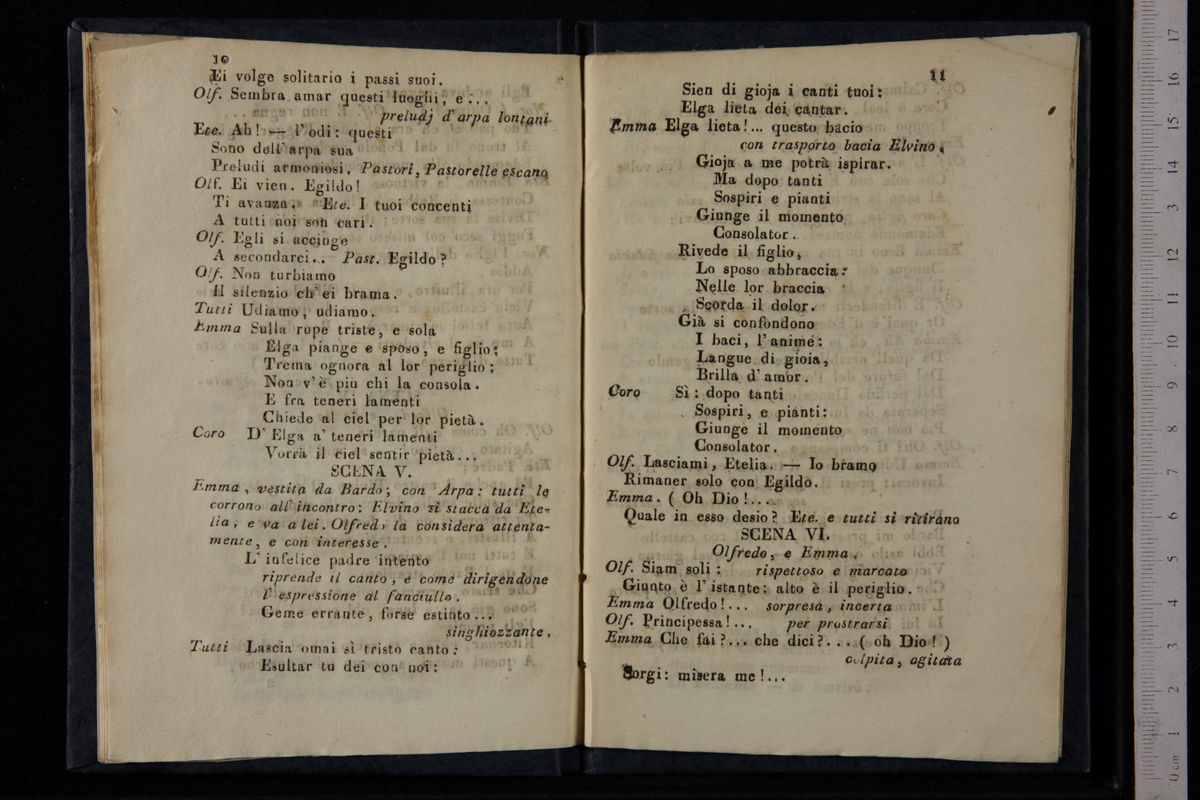 10
Ei volge solitario i passi suoi.
Olf. Sembra amar questi luoghi, e ...
preludj d'arpa lontani
Ete. Ah! — l'odi: questi
Sono dell'arpa sua
Preludi armoniosi. Pastori, Pastorelle escano
Olf. Ei vien. Egildo!
Ti avanza. Ete. I tuoi concenti
A tutti noi son cari.
Olf. Egli si accinge
A secondarci.. Past. Egildo?
Olf. Non turbiamo
Il silenzio ch'ei brama.
Tutti Udiamo, udiamo.
Emma Sulla rupe triste, e sola
Elga piange e sposo, e figlio;
Trema ognora al lor periglio;
Non v'è più chi la consola.
E fra teneri lamenti
Chiede al ciel per lor pietà.
Coro D'Elga a' teneri lamenti
Vorrà il ciel sentir pietà...
SCENA V.
Emma, vestita da Bardo; con Arpa: tutti le
corrono all'incontro; Elvino si stacca da Ete-
lia, e va a lei. Olfredo la considera attenta-
mente, e con interesse.
L'infelice padre intento
riprende il canto, e come dirigendone
l'espressione al fanciullo.
Geme errante, forse estinto...
singhiozzante.
Tutti Lascia omai sì tristo canto:
Esultar tu dei con noi:
11
Sien di gioja i canti tuoi:
Elga lieta dei cantar.
Emma Elga lieta!... questo bacio
con trasporto bacia Elvino.
Gioja a me potrà ispirar.
Ma dopo tanti
Sospiri e pianti
Giunge il momento
Consolator.
Rivede il figlio,
Lo sposo abbraccia:
Nelle lor braccia
Scorda il dolor.
Già si confondono
I baci, l'anime:
Langue di gioia,
Brilla d'amor.
Coro Sì: dopo tanti
Sospiri, e pianti:
Giunge il momento
Consolator.
Olf. Lasciami, Etelia. — Io bramo
Rimaner solo con Egildo.
Emma. ( Oh Dio!...
Quale in esso desio? Ete. e tutti si ritirano
SCENA VI.
Olfredo, e Emma.
Olf. Siam soli: rispettoso e marcato
Giunto è l'istante: alto è il periglio.
Emma Olfredo!... sorpresa, incerta
Olf. Principessa!... per prostrarsi
Emma Che fai?... che dici?... ( oh Dio! )
colpita, agitata
Sorgi: misera me!...